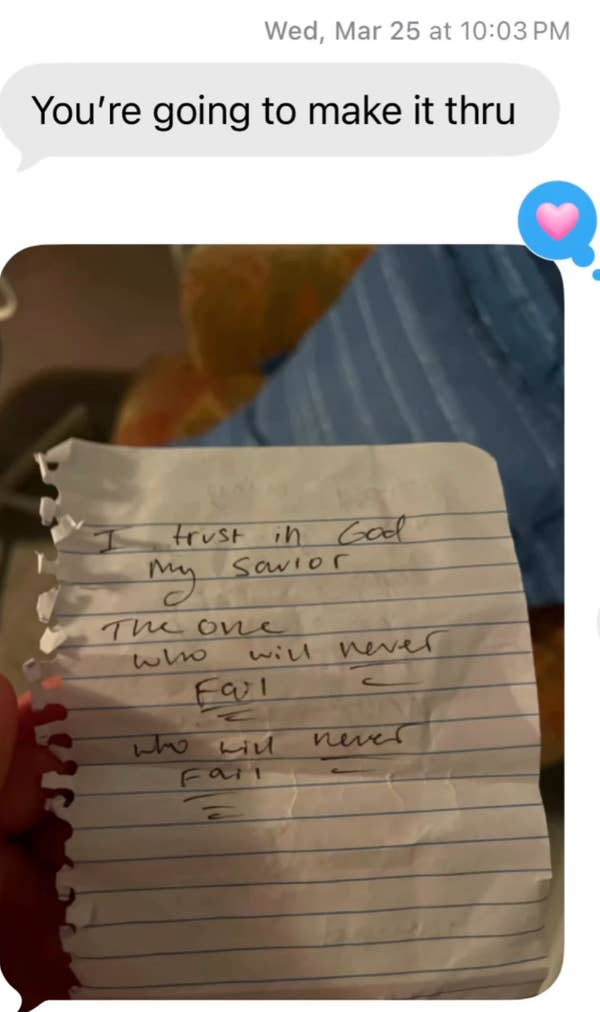 Wed, Mar 25 at 10:03 PM
You're going to make it thru
I trust in God
My Savior
The one
who will never
Fail
who will never
Fail